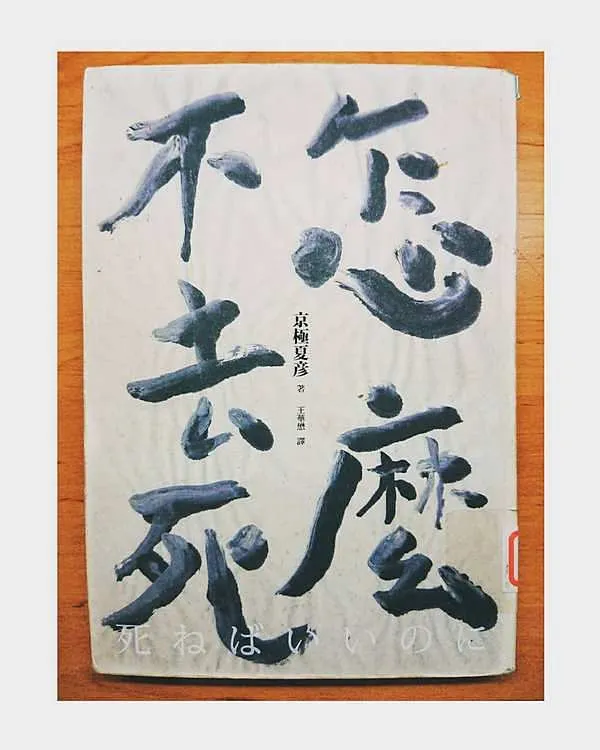 怎麼
不去死
京極夏彥 著 王華懋 譯
死ねばいいのに